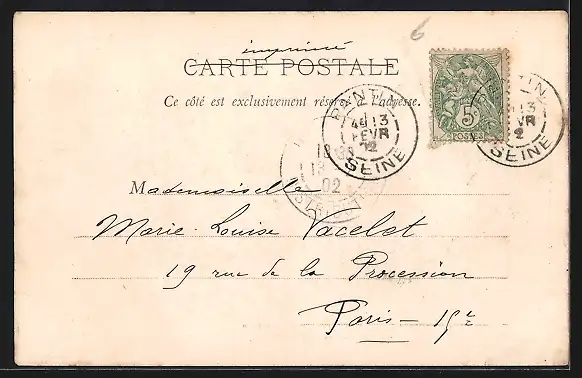 6
imprimé
CARTE POSTALE
Ce côté est exclusivement réservé à l'adresse.
PANTIN
13
FEVR
SEINE
5
POSTES
13
VR
2
SEINE
13
02
Mademoiselle
Marie-Louise Vacelet
19 rue de la Procession
Paris — 15e